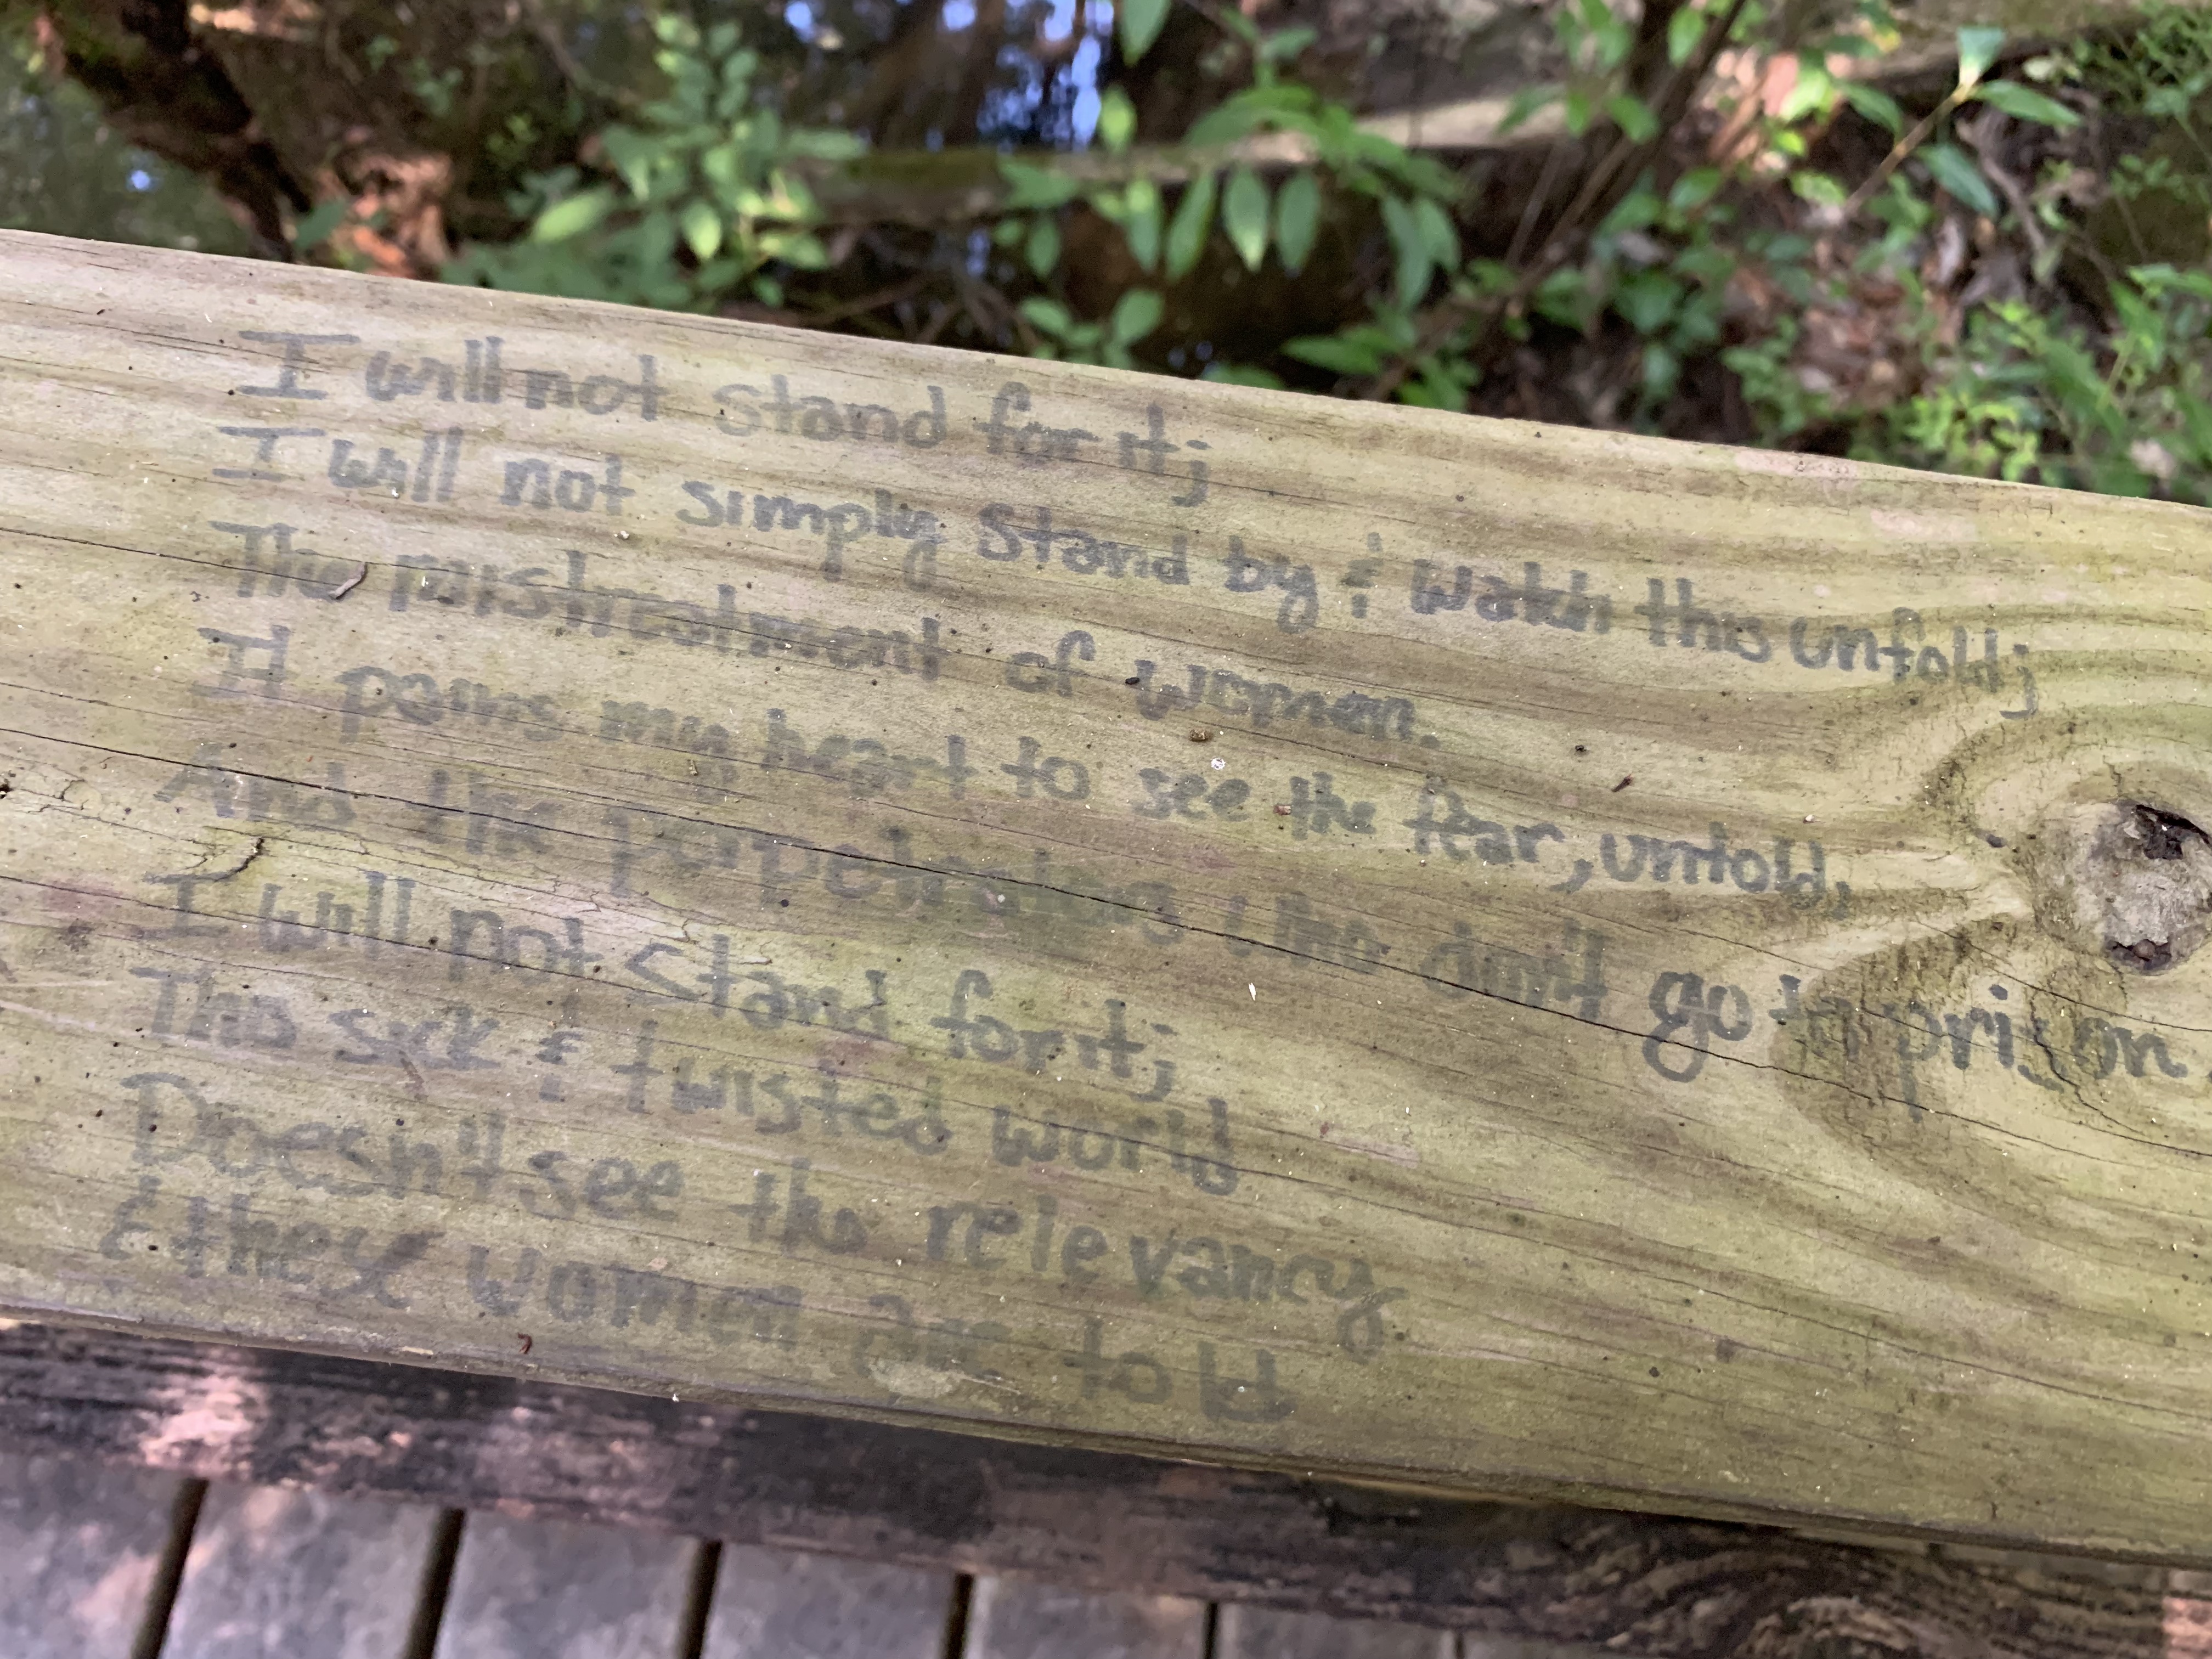 I will not stand for it;
I will not simply stand by & watch this unfold;
The mistreatment of women.
It pains my heart to see the fear, untold.
And the perpetrators who don't go to prison.
I will not stand for it;
This sick & twisted world
Doesn't see the relevancy
& these women are told